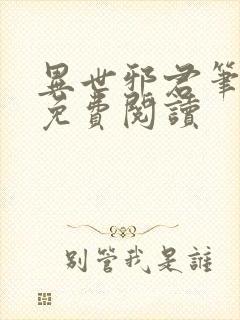 異世邪君筆
免費閱讀
别管我是誰